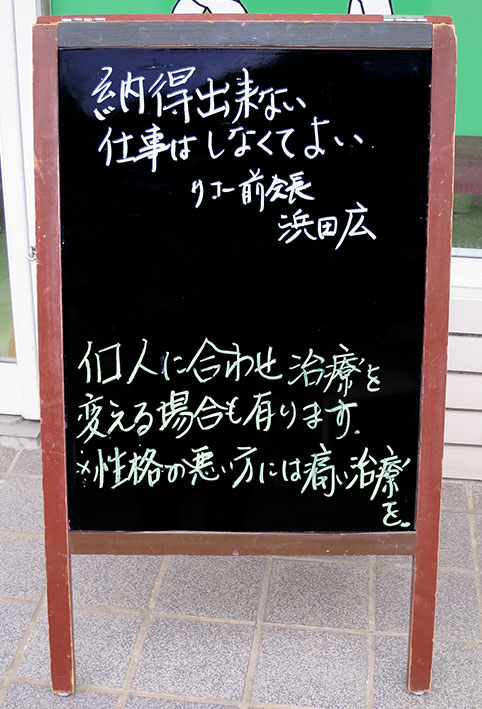 納得出来ない
仕事はしなくてよい
リコー前会長
浜田広
個人に合わせ治療を
変える場合も有ります.
※性格の悪い方には痛い治療
を。